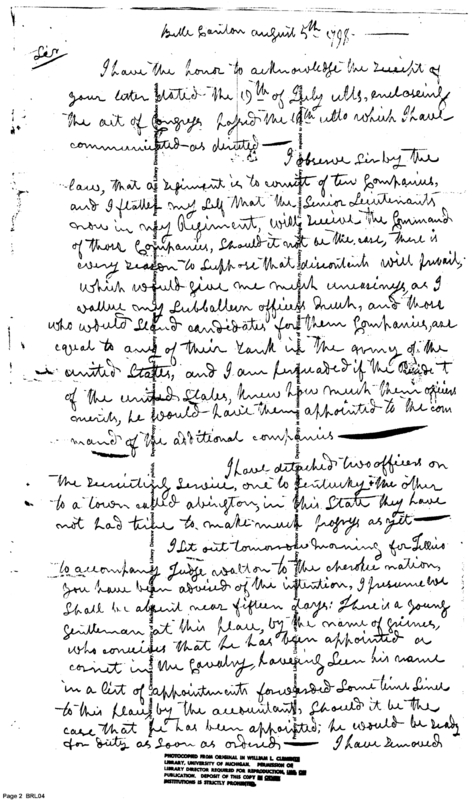 Belle Canton august 5th 1798.
Sir
I have the honor to acknowledge the receipt of
your later dated the 19th of July ulto, enclosing
the act of Congress the 16th ulto which I have
communicated as directed —
I observe Sir by the
law, that a regiment is to consist of ten Companies,
and I flatter my Self that the Senior Lieutenants
now in my Regiment, will receive the Command
of those Companies, Should it not be the case, there is
every reason to Suppose that discontents will prevail,
which would give me much uneasiness, as I
vallue my Subbaltern officers much, and those
who would Stand candidates for them Companies, are
equal to any of their rank in the army of the
united States, and I am persuaded if the
of the united States, knew how much them officers
merits, he would have them appointed to the com
mand of the additional companies —
I have detached two officers on
the recruiting Service, one to Kentucky & the other
to a town called abington, in this State they have
not had time to make much progress as yet —
I Set out tomorrow morning for Tellico
to accompany Judge walton to the cherokee nation,
you have been advised of the intention, I presume we
Shall be absent near fifteen days: There is a young
gentleman at this place, by the name of grimes,
who conceives that he has been appointed a
cornet in the Cavalry, haveing Seen his name
in a list of appointments forwarded Some time Since
to this place by the accountant, Should it be the
case that he has been appointed, he would be ready
for duty as Soon as ordered — I have removed
PHOTOCOPIED FROM ORIGINAL IN WILLIAM L. CLEMENTS
LIBRARY, UNIVERSITY OF MICHIGAN. PERMISSION OF
LIBRARY DIRECTOR REQUIRED FOR REPRODUCTION,
PUBLICATION. DEPOSIT OF THIS COPY IN OTHER
INSTITUTIONS IS STRICTLY PROHIBITED.
Page 2 BRL04